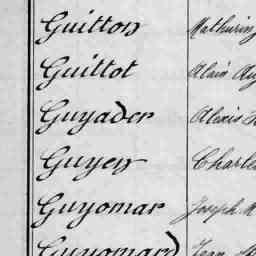 Guitton Mathurin
Guillot Alain Au
Guyader Alexis
Guyen Charle
Guyomar Joseph M
Guyomard Jean